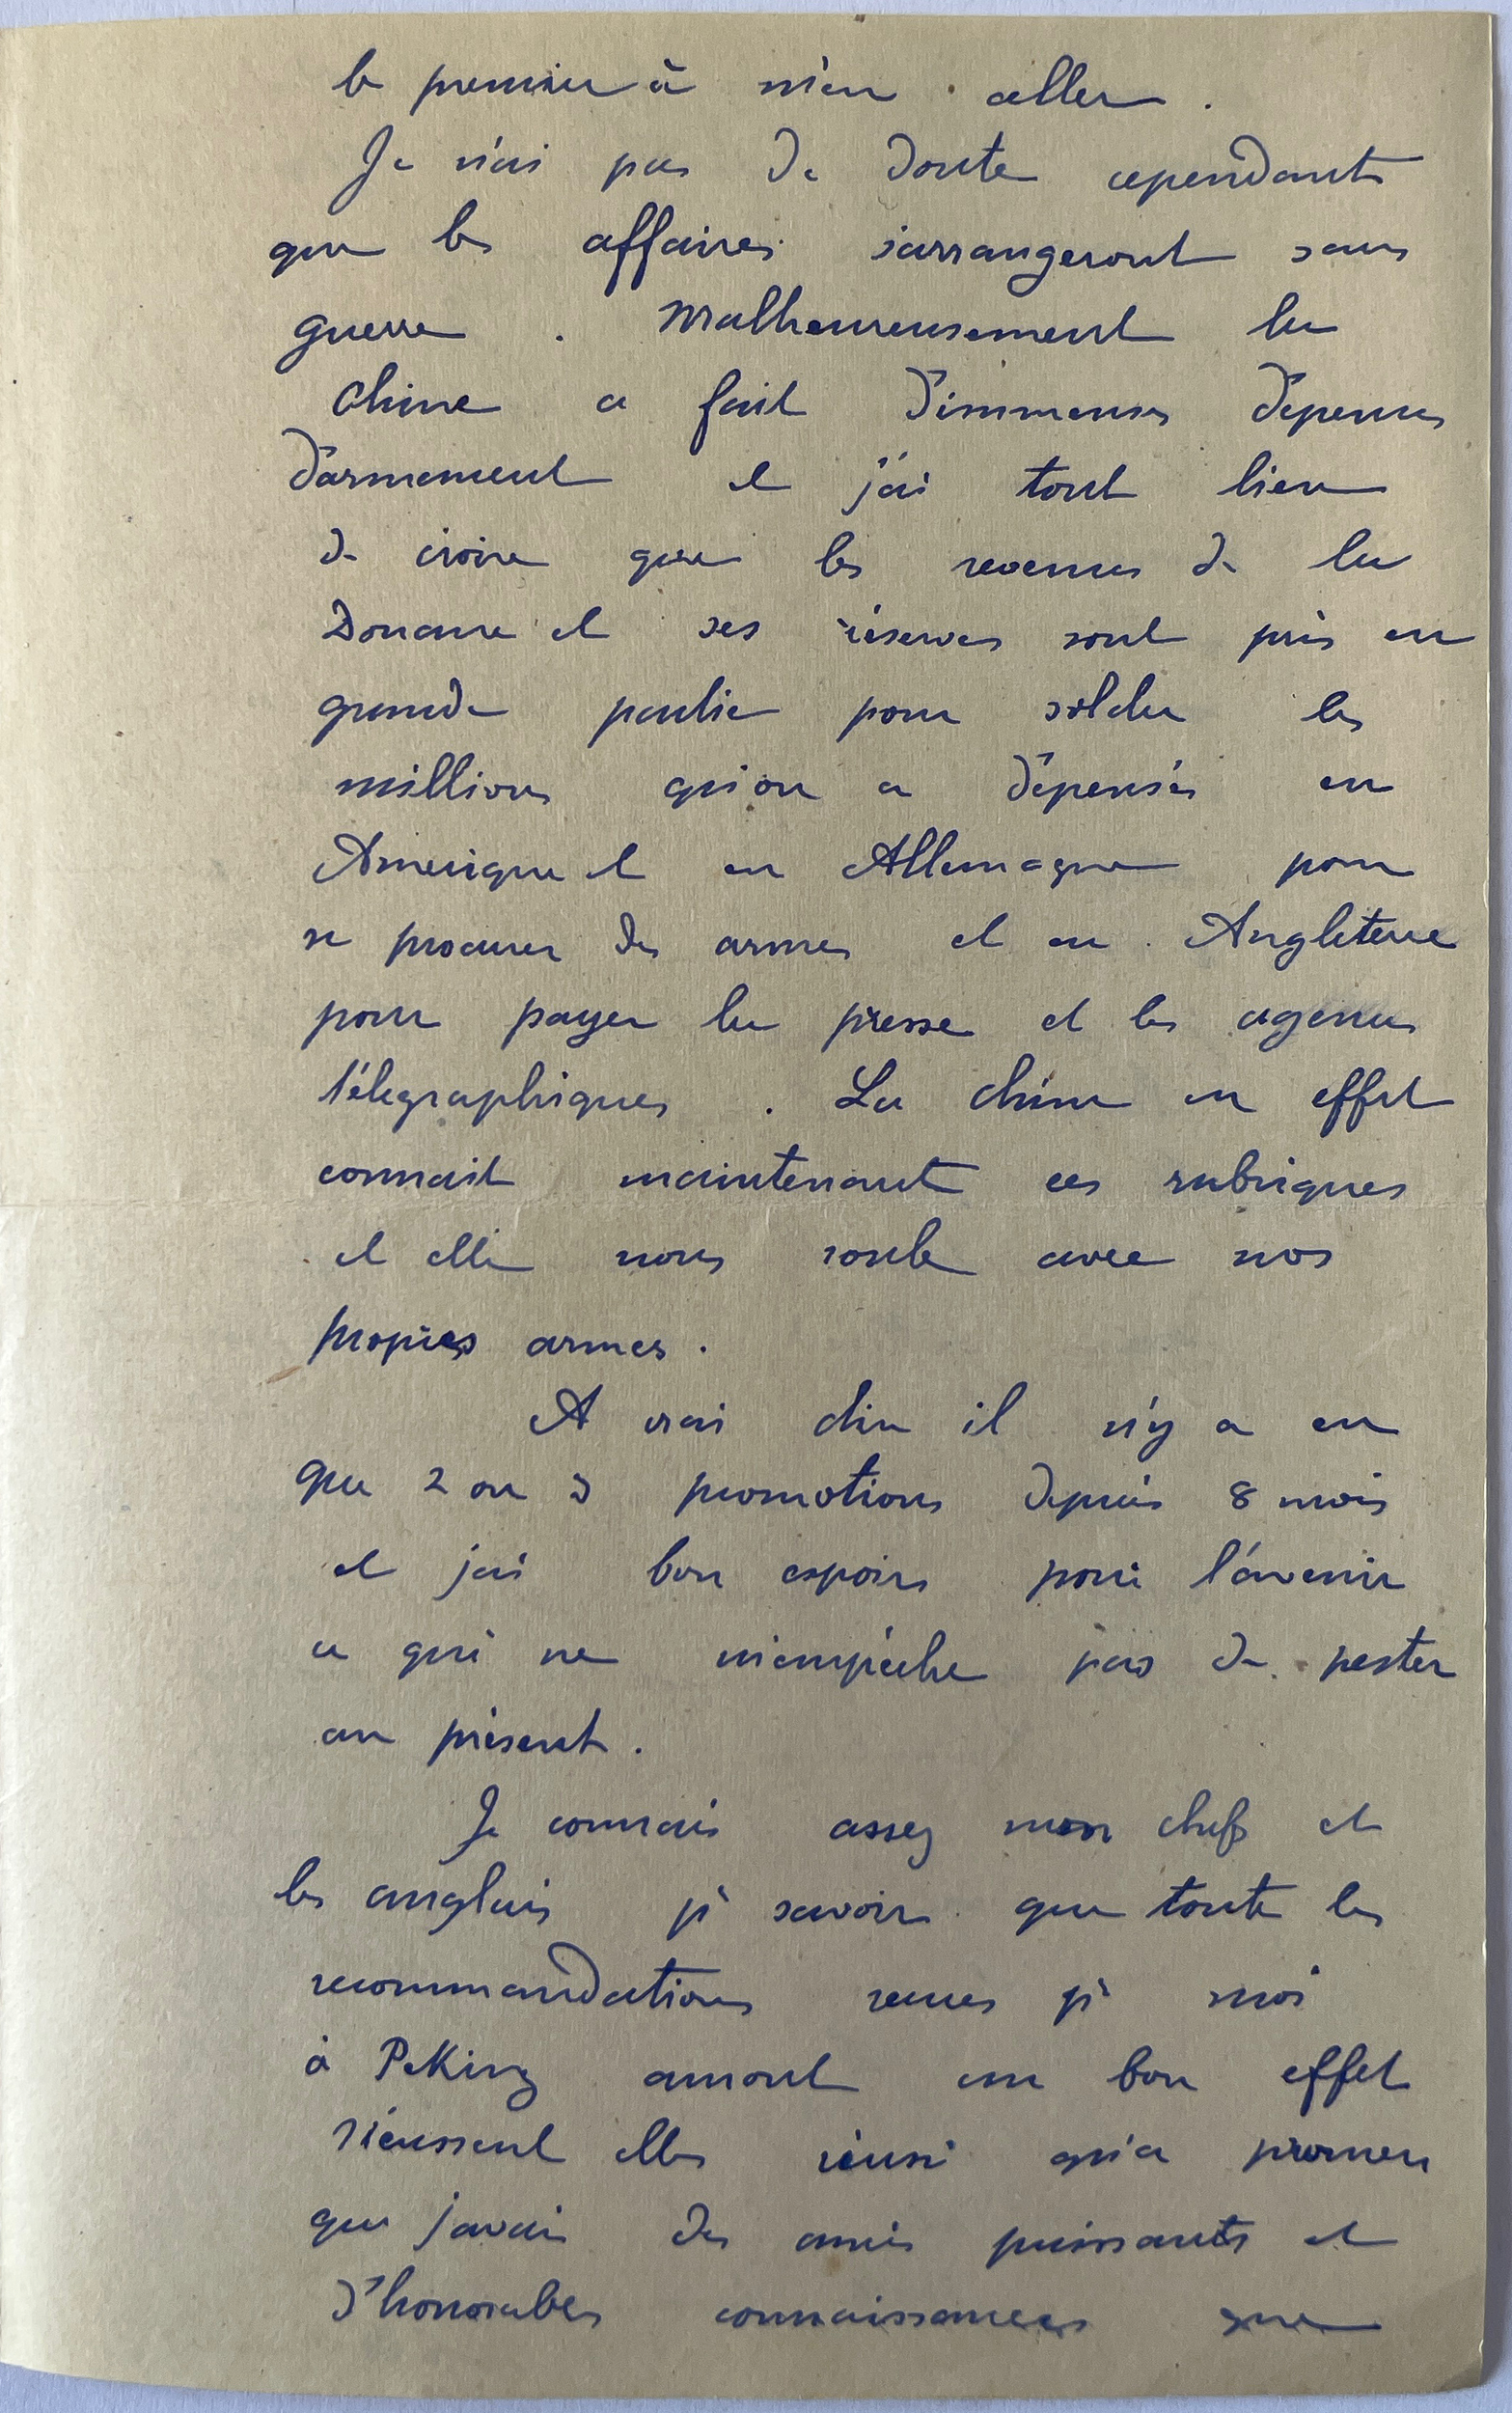 le premier à m'en aller.
Je n'ai pas de doute cependant
que les affaires s'arrangeront sans
guerre. Malheureusement la
Chine a fait d'immenses dépenses
d'armement et j'ai tout lieu
de croire que les revenus de la
Douane et ses réserves sont pris en
grande partie pour solder les
millions qu'on a dépensés en
Amerique et en Allemagne pour
se procurer des armes et en Angleterre
pour payer la presse et les agences
télégraphiques. La chine en effet
connait maintenant ces rubriques
et elle nous roule avec nos
propres armes.
A vrai dire il n'y a eu
que 2 ou 3 promotions depuis 8 mois
et j'ai bon espoir pour l'avenir
ce qui ne m'empêche pas de pester
au présent.
Je connais assez mon chef et
les anglais pr savoir que toute les
recommandations venues pr moi
à Peking auront un bon effet
n'eussent elles réussi qu'a prouver
que j'avais des amis puissants et
d'honorables connaissances que